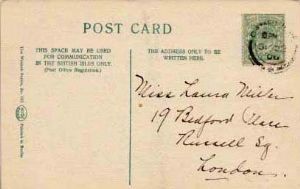 POST CARD
THIS SPACE MAY BE USED
FOR COMMUNICATION
IN THE BRITISH ISLES ONLY.
(Post Office Regulation.)
THE ADDRESS ONLY TO BE
WRITTEN HERE.
Miss Laura Miller
19 Bedford Place
Russell Sq.
London.